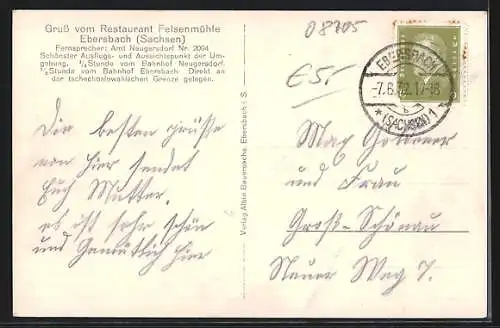 Gruß vom Restaurant Felsenmühle
Ebersbach (Sachsen)
Fernsprecher: Amt Neugersdorf Nr. 2004
Schönster Ausflugs- und Aussichtspunkt der Um-
gebung. ¼ Stunde vom Bahnhof Neugersdorf.
¾ Stunde vom Bahnhof Ebersbach. Direkt an
der tschechoslowakischen Grenze gelegen.
Die besten Grüsse
von hier sendet
Euch Mutter.
es ist sehr schön
und Gemütlich hier
Verlag Albin Bauersachs, Ebersbach i. S.
08705
€5.-
EBERSBACH
-7.6.32.17-18
b
* (SACHSEN) 1
Max
und Frau
Groß-Schönau
Neuer Weg 7.